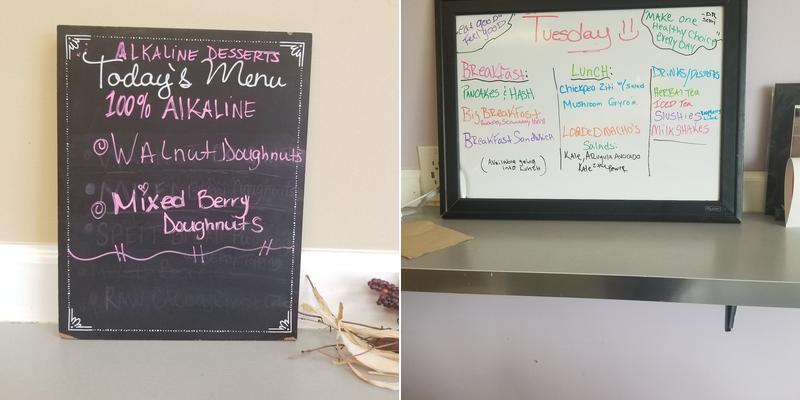 ALKALINE DESSERTS
Today's Menu
100% AlKALINE
WAlnut Doughnuts
Mixed Berry
Doughnuts
"eat gOOD
Feel gOOD"
Tuesday
"MAKE one
Healthy Choice
Every DAY"
-DR
Sebi
BREAKFAST:
PANCAKES & HASH
Big BreakFast
BreakFast Sandwich
(AvAilable going
into Lunch)
LUNCH:
Chickpea Ziti w/ Salad
Mushroom Gyro's
LOADED NACHO'S
Salads:
KAle, ARugulA Avocado
KAle
DRiNKS/DesseRts
HeRBAl Tea
ICED Tea
SlusHies
MilKSHAKES